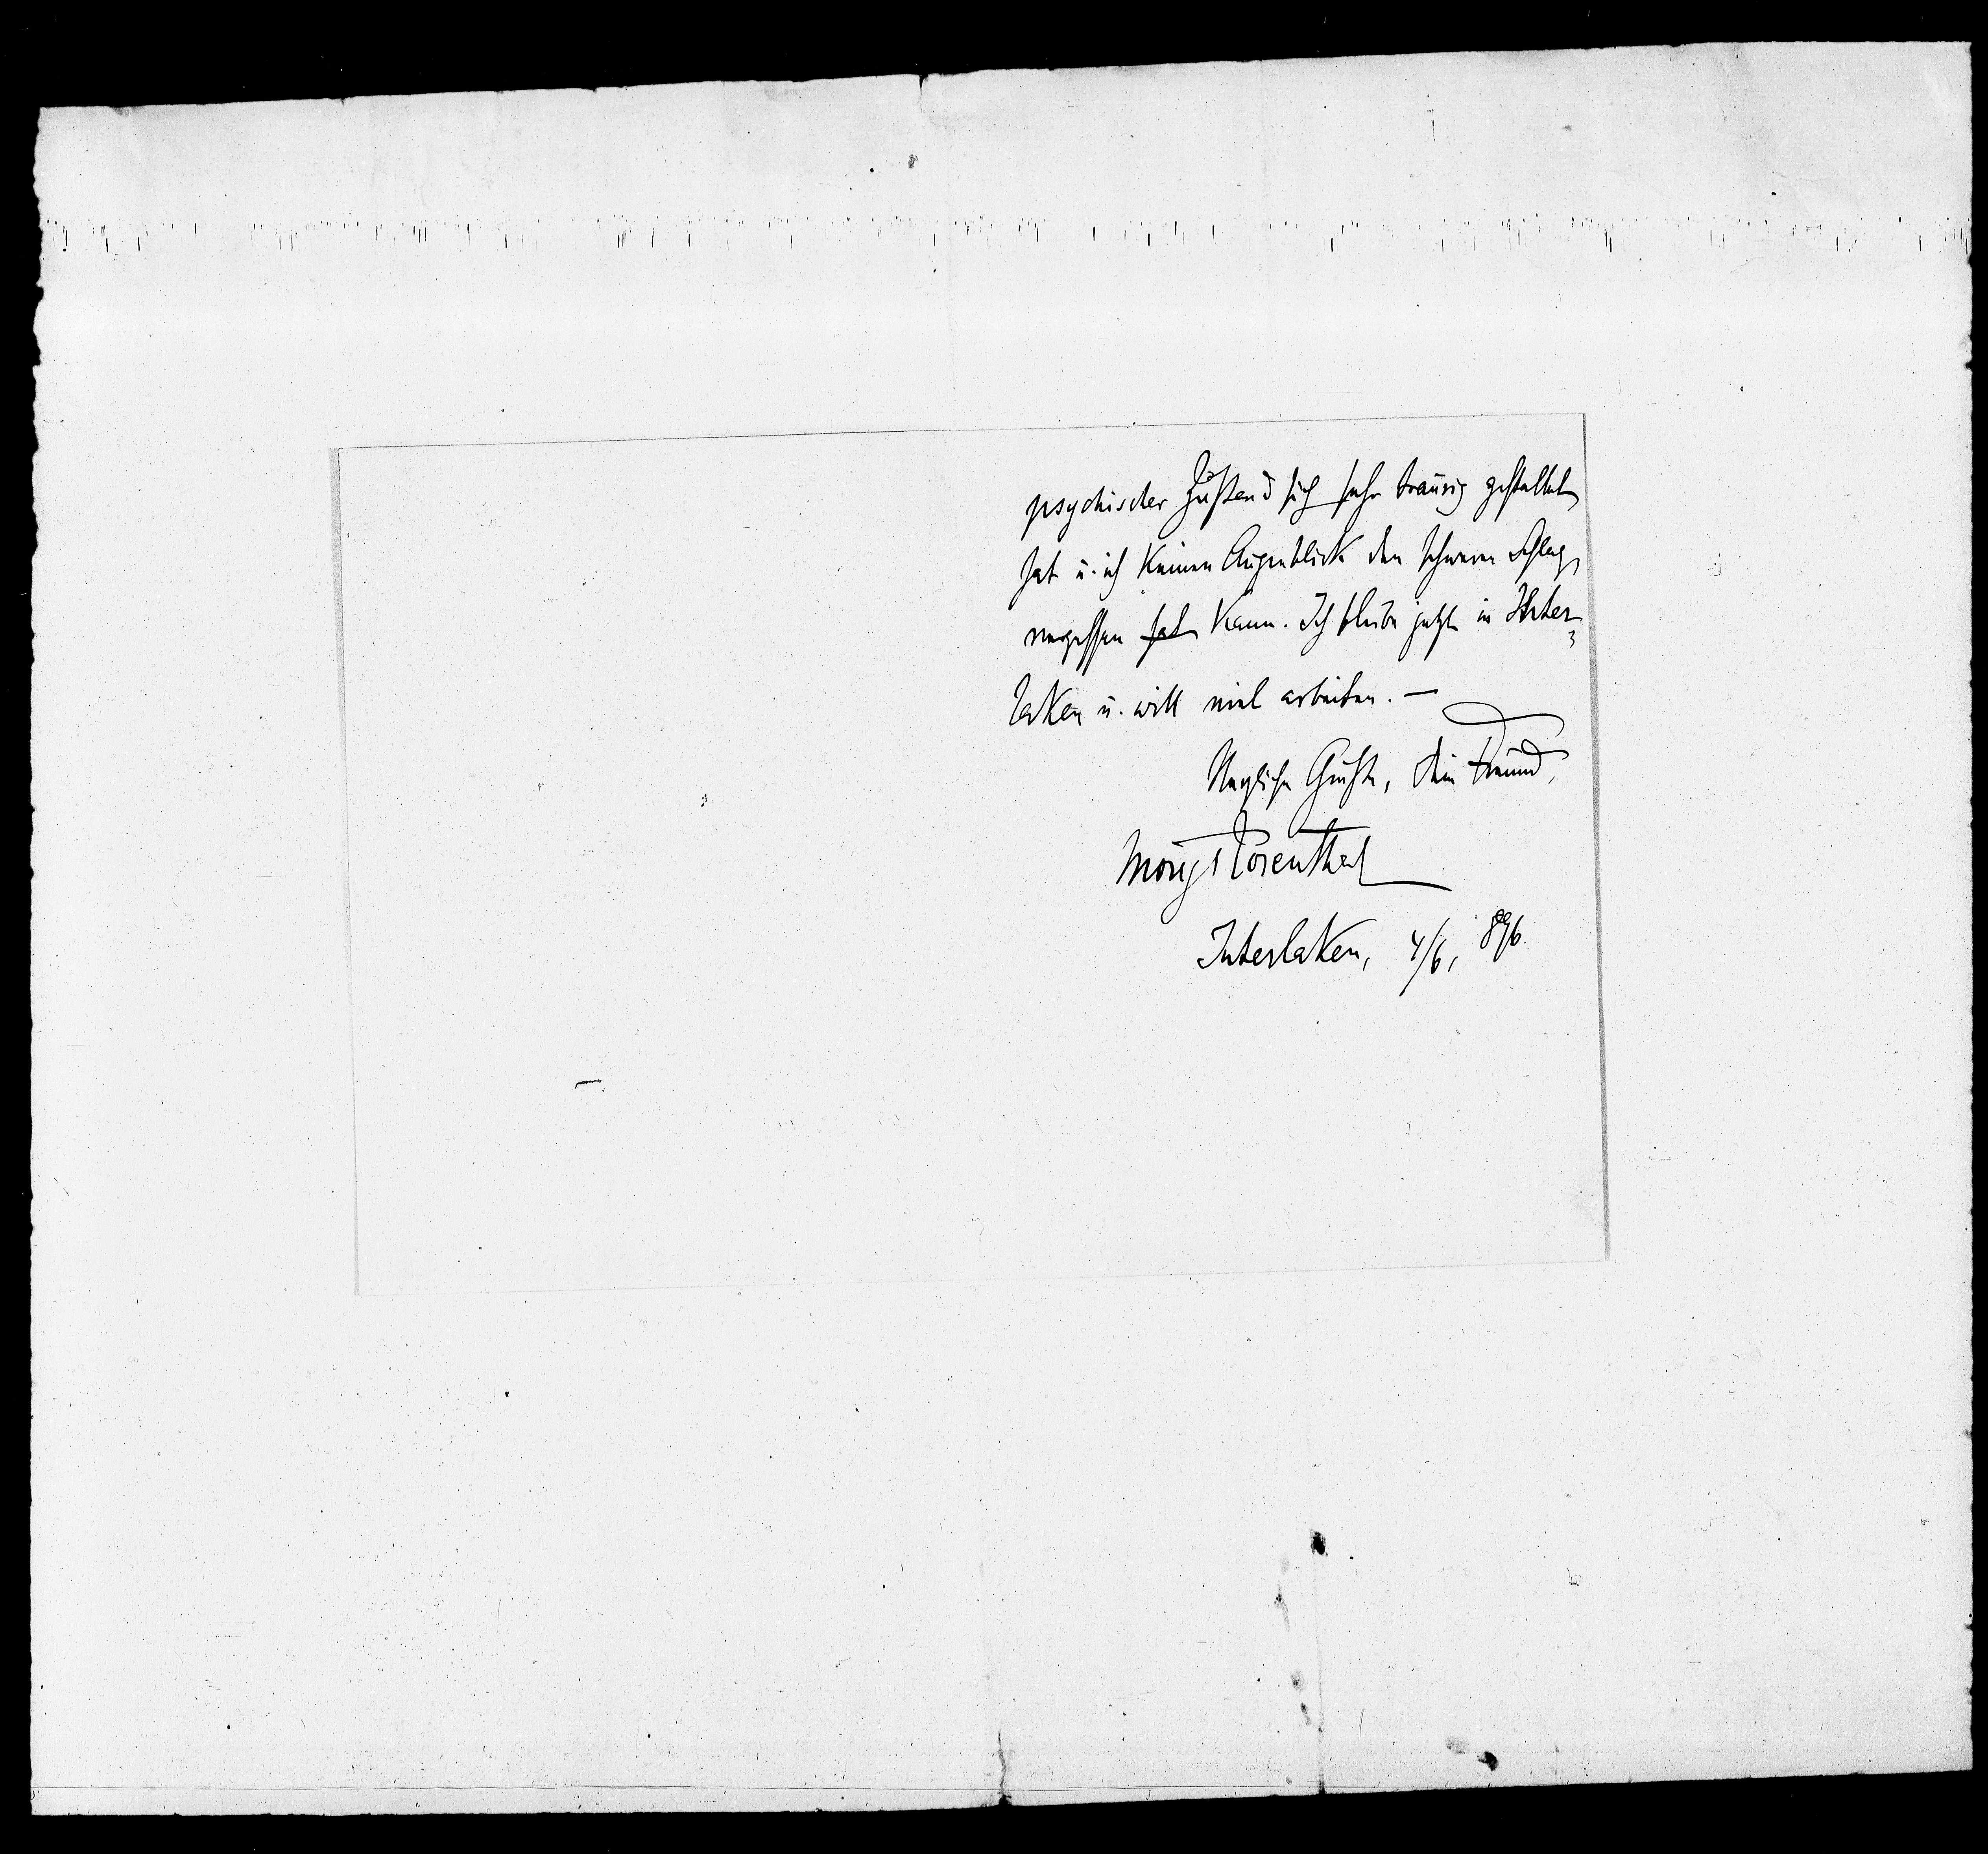 psychischer Zustand sich sehr traurig gestaltet
hat u. ich keinen Augenblick den schweren Schlag
vergessen hat kann. Ich bleibe jetzt in Inter-
laken u. will viel arbeiten. —
Herzliche Grüße, Dein Freund,
Moriz Rosenthal
Interlaken, 4/6, 896